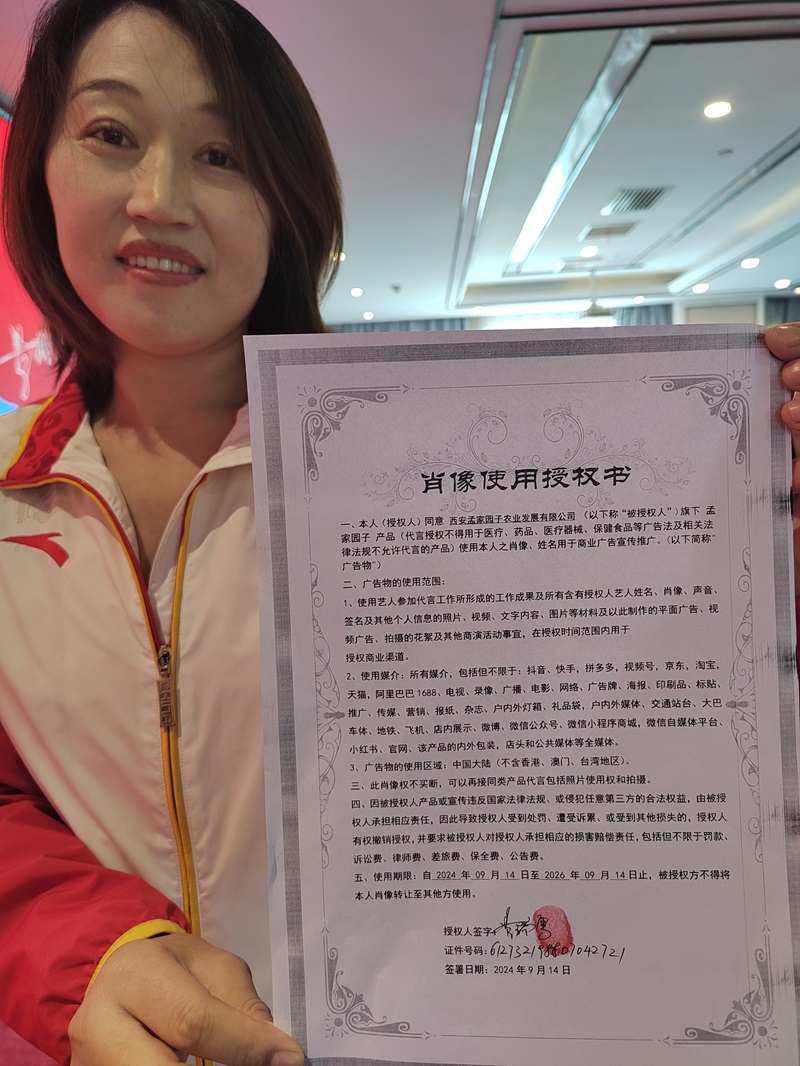 肖像使用授权书
一、本人（授权人）同意 西安孟家园子农业发展有限公司 （以下称“被授权人”）旗下 孟
家园子 产品（代言授权不得用于医疗、药品、医疗器械、保健食品等广告法及相关法
律法规不允许代言的产品）使用本人之肖像、姓名用于商业广告宣传推广。（以下简称"
广告物"）
二、广告物的使用范围：
1、使用艺人参加代言工作所形成的工作成果及所有含有授权人艺人姓名、肖像、声音、
签名及其他个人信息的照片、视频、文字内容、图片等材料及以此制作的平面广告、视
频广告、拍摄的花絮及其他商演活动事宜，在授权时间范围内用于
授权商业渠道。
2、使用媒介：所有媒介，包括但不限于：抖音、快手，拼多多，视频号，京东，淘宝，
天猫，阿里巴巴 1688、电视、录像、广播、电影、网络、广告牌、海报、印刷品、标贴、
推广、传媒、营销、报纸、杂志、户内外灯箱、礼品袋，户内外媒体、交通站台、大巴
车体、地铁、飞机、店内展示、微博、微信公众号、微信小程序商城，微信自媒体平台、
小红书、官网、该产品的内外包装，店头和公共媒体等全媒体。
3、广告物的使用区域：中国大陆（不含香港、澳门、台湾地区）。
三、此肖像权不买断，可以再接同类产品代言包括照片使用权和拍摄。
四、因被授权人产品或宣传违反国家法律法规、或侵犯任意第三方的合法权益，由被授
权人承担相应责任，因此导致授权人受到处罚、遭受诉累、或受到其他损失的，授权人
有权撤销授权，并要求被授权人对授权人承担相应的损害赔偿责任，包括但不限于罚款、
诉讼费、律师费、差旅费、保全费、公告费。
五、使用期限：自 2024 年 09 月 14 日至 2026 年 09 月 14 日止，被授权方不得将
本人肖像转让至其他方使用。
授权人签字：
证件号码：
签署日期：2024 年 9 月 14 日